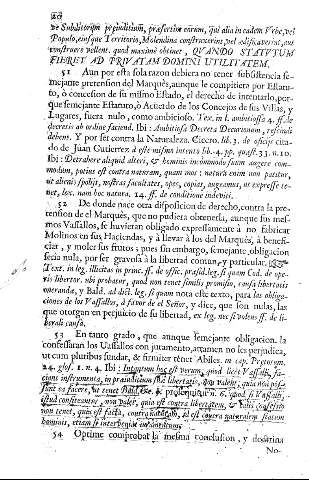 20
ve Subditorum præjuditium, præsertim eorum, qui alia in eadem Urbe, vel
Populo, eiusque Territorio, Molendina construxerint, vel ædificaverint, aut
construere vellent. quod maximè obtinet, QUANDO STATUTUM
FIERET AD PRIVATAM DOMINI UTILITATEM.
51 Aun por esta sola razon debiera no tener subsistencia se-
mejante pretension del Marquès, aunque le compitiera por Estatu-
to, ò concession de su mismo Estado, el derecho de intentarlo, por-
que semejante Estatuto, ò Acuerdo de los Concejos de sus Villas, y
Lugares, fuera nulo, como ambitioso. Tex. in l. ambitiosa 4. ff. de
decretis ab ordine faciend. Ibi: Ambitiosa Decreta Decurionum, rescindi
debent. Y por ser contra la Naturaleza. Cicero, lib. 3. de officijs cita-
do de Juan Gutierrez à este mismo intento lib. 4. pp. quæst. 33. n. 10.
Ibi: Detrahere aliquid alteri, & hominis incommodo suum augere com-
modum, potius est contra naturam, quam mors: natura enim non patitur,
ut alienis spolijs, nostras facultates, opes, copias, augeamus, ut expresse te-
net, lex. nam hoc natura. 14. ff. de conditione indebiti.
52 De donde nace otra disposicion de derecho, contra la pre-
tension de el Marquès, que no pudiera obtenerla, aunque sus mes-
mos Vassallos, se huvieran obligado expressamente à no fabricar
Molinos en sus Haciendas, y à llevar à los del Marquès, à benefi-
ciar, y moler sus frutos; pues sin embargo, semejante obligacion
seria nula, por ser gravosa à la libertad comun, y particular,
Tex. in leg. illicitas in princ. ff. de offic. præsid. leg. si quam Cod. de ope-
ris libertor. ubi probatur, quod non tenet similis promisso, causa libertatis
onerandæ, y Bald. ad dict. leg. si quam nota este texto, para las obliga-
ciones de los Vassallos, à favor de el Señor, y dice, que son nulas, las
que otorgan en perjuicio de su libertad, ex leg. nec si volens ff. de li-
berali causa.
53 En tanto grado, que aunque semejante obligacion, la
confessaran los Vassallos con juramento, aun no les perjudica,
ut cum pluribus fundat, & firmiter tenet Abiles. in cap. Prætorum.
24. glos. 1. n. 4. Ibi: Intantum hoc est verum, quod licet Vassalli,
54 Optime comprobat la mesma conclusion, y doctrina
No-